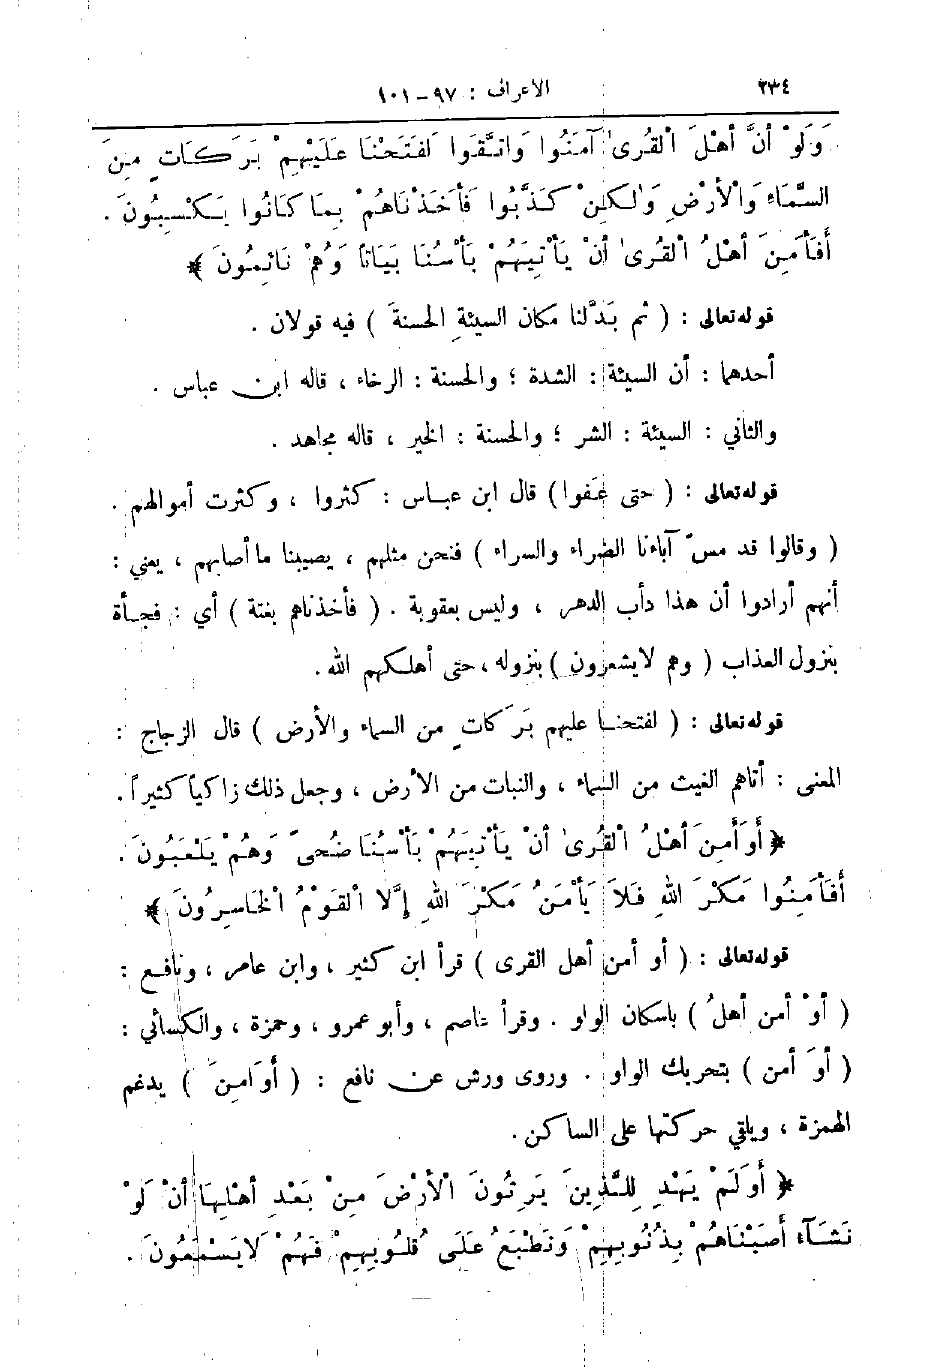 ٢٣٤ الأعراف : ٩٧ – ١٠١
وَلَوْ أَنَّ أَهْلَ الْقُرىٰ آمَنُوا وَاتَّقَوا لَفَتَحْنَا عَلَيْهِمْ بَرَكَاتٍ مِنَ
السَّمَاءِ وَالْأَرْضِ وَلٰكِنْ كَذَّبُوا فَأَخَذْنَاهُمْ بِمَا كَانُوا يَكْسِبُونَ .
أَفَأَمِنَ أَهْلُ الْقُرىٰ أَنْ يَأْتِيَهُمْ بَأْسُنَا بَيَاتاً وَهُمْ نَائِمُونَ ﴾
قوله تعالى : ( ثم بَدَّلنا مكان السيئةِ الحسنةَ ) فيه قولان .
أحدهما : أن السيئة : الشدة ؛ والحسنة : الرخاء ، قاله ابن عباس .
والثاني : السيئة : الشر ؛ والحسنة : الخير ، قاله مجاهد .
قوله تعالى : ( حتى عَفوا ) قال ابن عباس : كثروا ، وكثرت أموالهم .
( وقالوا قد مسّ آباءنا الضراء والسراء ) فنحن مثلهم ، يصيبنا ما أصابهم ، يعني :
أنهم أرادوا أن هذا دأب الدهر ، وليس بعقوبة . ( فأخذناهم بغتة ) أي : فجأة
بنزول العذاب ( وهم لا يشعرون ) بنزوله ، حتى أهلكهم الله .
قوله تعالى : ( لفتحنا عليهم بَرَكاتٍ من السماء والأرض ) قال الزجاج :
المعنى : أتاهم الغيث من السماء ، والنبات من الأرض ، وجعل ذلك زاكياً كثيراً .
﴿ أَوَأَمِنَ أَهْلُ الْقُرىٰ أَنْ يَأْتِيَهُمْ بَأْسُنَا ضُحىً وَهُمْ يَلْعَبُونَ .
أَفَأَمِنُوا مَكْرَ اللهِ فَلَا يَأْمَنُ مَكْرَ اللهِ إِلَّا الْقَوْمُ الْخَاسِرُونَ ﴾
قوله تعالى : ( أو أمن أهل القرى ) قرأ ابن كثير ، وابن عامر ، ونافع :
( أوْ أمن أهلُ ) باسكان الواو . وقرأ عاصم ، وأبو عمرو ، وحمزة ، والكسائي :
( أوَ أمن ) بتحريك الواو . وروى ورش عن نافع : ( أوَامِنَ ) يدغم
الهمزة ، ويلقي حركتها على الساكن .
﴿ أَوَلَمْ يَهْدِ لِلَّذِينَ يَرِثُونَ الْأَرْضَ مِنْ بَعْدِ أَهْلِهَا أَنْ لَوْ
نَشَآءُ أَصَبْنَاهُمْ بِذُنُوبِهِمْ وَنَطْبَعُ عَلَى قُلُوبِهِمْ فَهُمْ لَا يَسْمَعُونَ .